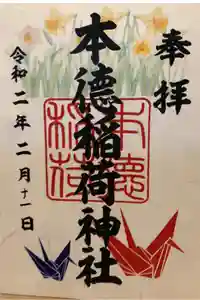 奉拝
本徳稲荷神社
本徳稲荷
令和二年二月十一日